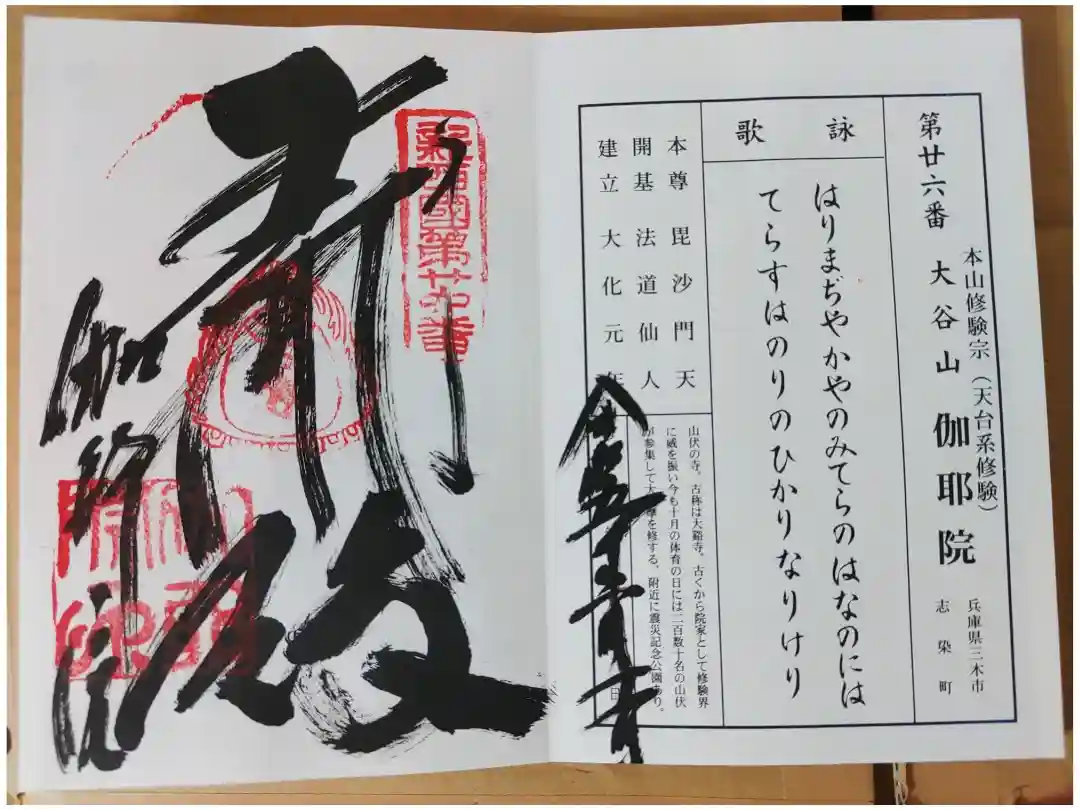 第廿六番 大谷山 伽耶院
本山修験宗(天台系修験)
兵庫県三木市
志染町
詠歌
はりまぢやかやのみてらのはなのには
てらすはのりのひかりなりけり
本尊 毘沙門天
開基 法道仙人
建立 大化元年
山伏の寺。古称は天谿寺。古くから院家として修験界
に威を振い今も十月の体育の日には二百数十名の山伏
が参集して大護摩を修する。附近に震災記念公園あり。
日
新西國第廿六番
伽耶院